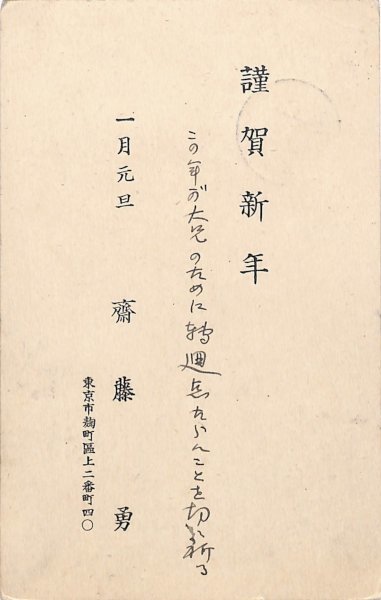 謹賀新年
この年が大兄のために轉廻点たらんことを切に祈る
一月元旦
齋藤勇
東京市麹町區上二番町四〇